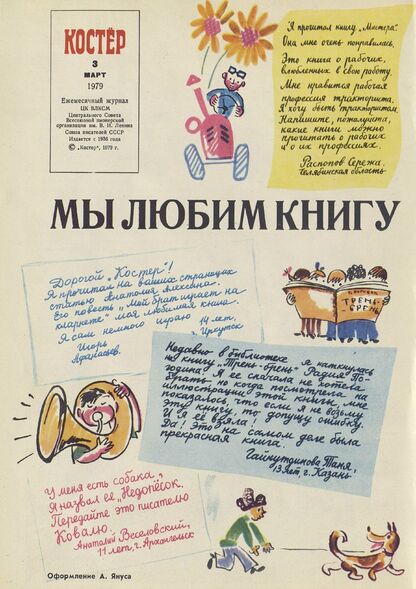 КОСТЁР
3
МАРТ
1979
Ежемесячный журнал
ЦК ВЛКСМ
Центрального Совета
Всесоюзной пионерской
организации им. В. И. Ленина
Союза писателей СССР
Издается с 1936 года
© „Костер“, 1979 г.
Я прочитал книгу „Мастера“.
Она мне очень понравилась.
Это книга о рабочих,
влюбленных в свою работу.
Мне нравится рабочая
профессия тракториста.
Я хочу быть трактористом.
Напишите, пожалуйста,
какие книги можно
прочитать о рабочих
и о их профессиях.
Распопов Сережа.
Челябинская область
МЫ ЛЮБИМ КНИГУ
Дорогой „Костер“!
Я прочитал на ваших страницах
статью Анатолия Алексина.
Его повесть „Мой брат играет на
кларнете“ моя любимая книга.
Я сам немного играю
14 лет,
г. Иркутск
Игорь
Афанасьев.
ТРЕНЬ-
БРЕНЬ
Недавно в библиотеке я наткнулась
на книгу „Трень-брень“ Радия По-
година. Я ее сначала не хотела
брать, но когда посмотрела на
иллюстрации этой книги, мне
показалось, что если я не возьму
эту книгу, то допущу ошибку.
И я ее взяла!
Да! Это на самом деле была
прекрасная книга.
Гайнутдинова Таня,
13 лет, г. Казань
У меня есть собака,
Я назвал ее „Недопёсок“.
Передайте это писателю
Ковалю.
Анатолий Веселовский,
11 лет, г. Архангельск
Оформление А. Януса